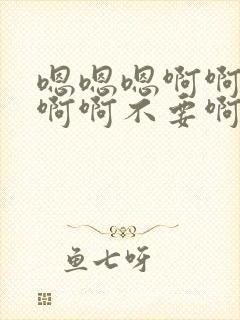 嗯嗯嗯啊啊
啊啊不要啊
鱼七呀